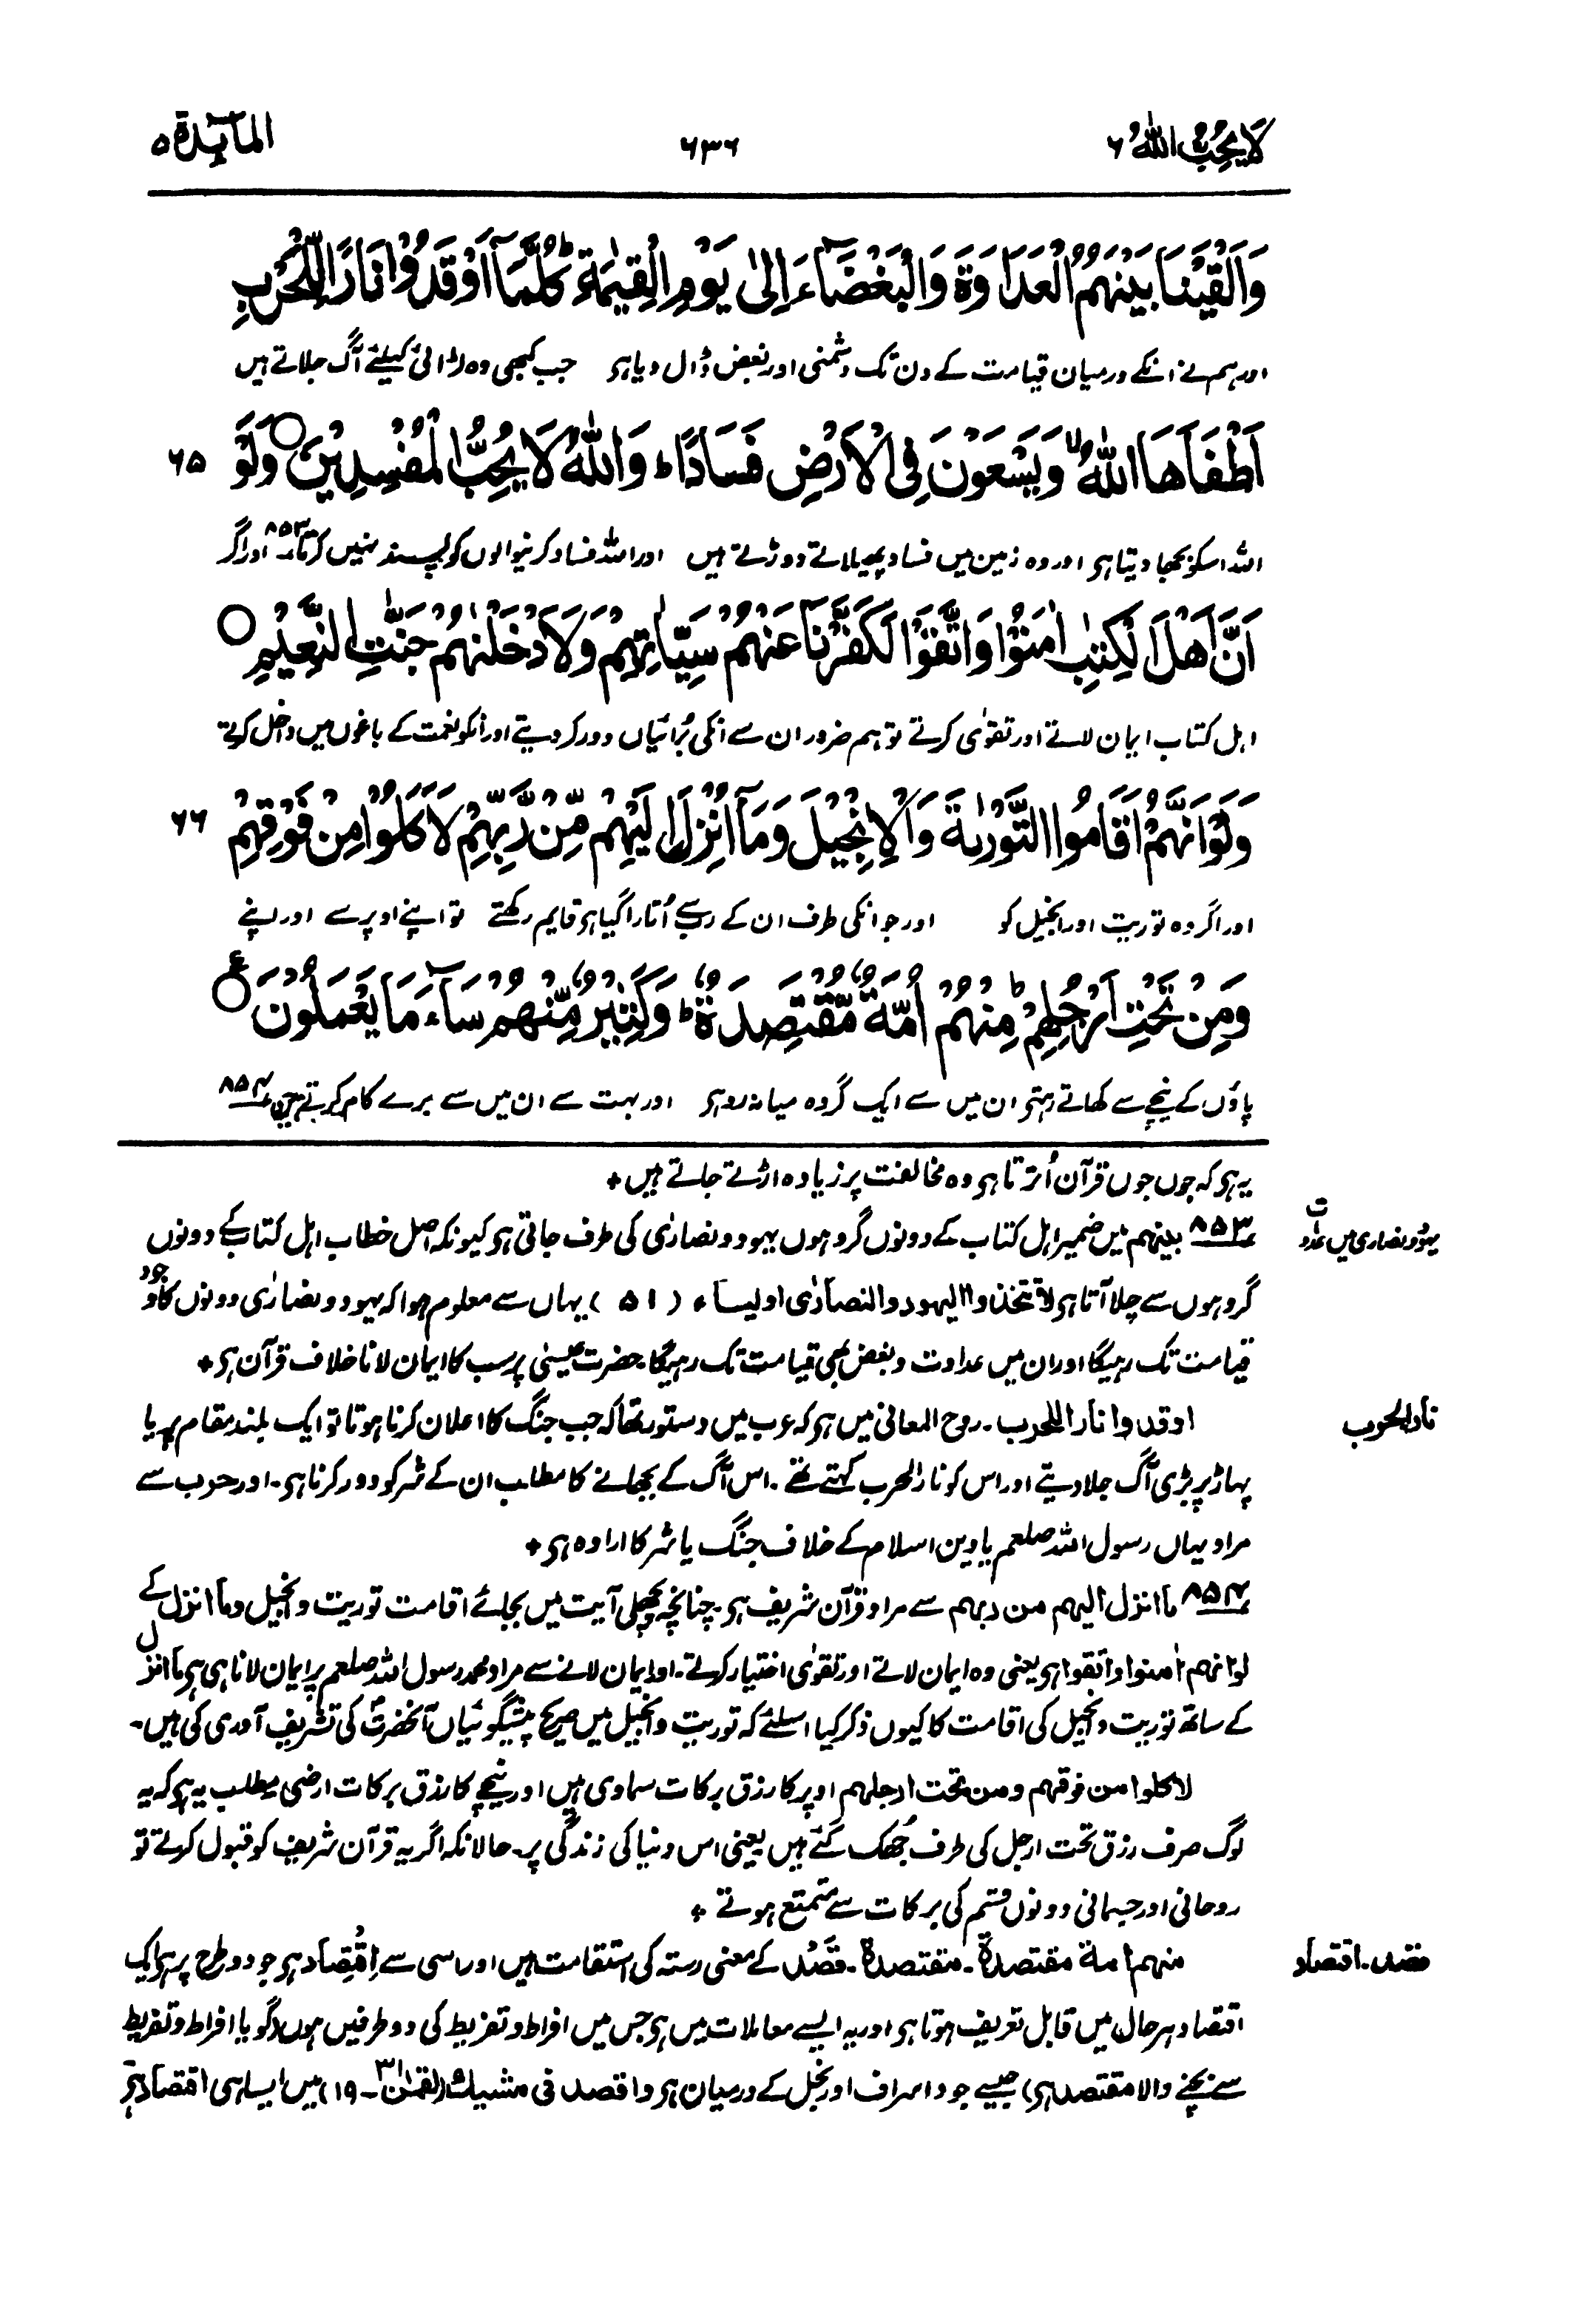 لَا يُحِبُّ اللّٰهُ ۶
۶۳۶
المآئدة ۵
وَاَلْقَيْنَا بَيْنَهُمُ الْعَدَاوَةَ وَالْبَغْضَآءَ اِلٰى يَوْمِ الْقِيٰمَةِ ؕ كُلَّمَآ اَوْقَدُوْا نَارًا لِّلْحَرْبِ
اور ہم نے انکے درمیان قیامت کے دن تک دشمنی اور بغض ڈال دیا ہو جب کبھی وہ لڑائی کیلئے آگ جلاتے ہیں
اَطْفَاَهَا اللّٰهُ ۙ وَيَسْعَوْنَ فِى الْاَرْضِ فَسَادًا ؕ وَاللّٰهُ لَا يُحِبُّ الْمُفْسِدِيْنَ ○ وَلَوْ
۶۵
اللہ اسکو بجھا دیتا ہو اور وہ زمین میں فساد پھیلاتے دوڑتے ہیں اور اللہ فساد کرنیوالوں کو پسند نہیں کرتا ۸۵۳ اور اگر
اَنَّ اَهْلَ الْكِتٰبِ اٰمَنُوْا وَاتَّقَوْا لَكَفَّرْنَا عَنْهُمْ سَيِّاٰتِهِمْ وَلَاَدْخَلْنٰهُمْ جَنّٰتِ النَّعِيْمِ ○
اہل کتاب ایمان لاتے اور تقوٰی کرتے تو ہم ضرور ان سے انکی بُرائیاں دور کر دیتے اور انکو نعمت کے باغوں میں داخل کرتے
وَلَوْ اَنَّهُمْ اَقَامُوا التَّوْرٰىةَ وَالْاِنْجِيْلَ وَمَآ اُنْزِلَ اِلَيْهِمْ مِّنْ رَّبِّهِمْ لَاَكَلُوْا مِنْ فَوْقِهِمْ
۶۶
اور اگر وہ توریت اور انجیل کو اور جو انکی طرف ان کے رب سے اُتارا گیا ہو قایم رکھتے تو اپنے اوپر سے اور اپنے
وَمِنْ تَحْتِ اَرْجُلِهِمْ ؕ مِنْهُمْ اُمَّةٌ مُّقْتَصِدَةٌ ؕ وَكَثِيْرٌ مِّنْهُمْ سَآءَ مَا يَعْمَلُوْنَ ○ ع
پاؤں کے نیچے سے کھاتے رہتے ان میں سے ایک گروہ میانہ رو ہو اور بہت سے ان میں سے برے کام کرتے ہیں ۸۵۴
یہ ہو کہ جوں جوں قرآن اُترتا ہو وہ مخالفت پر زیادہ اڑتے جاتے ہیں +
یہود و نصاریٰ میں عداوت
۸۵۳ بینہم میں ضمیر اہل کتاب کے دونوں گروہوں یہود و نصارٰی کی طرف جاتی ہو کیونکہ اصل خطاب اہل کتاب کے دونوں
گروہوں سے چلا آتا ہو لا تتخذوا الیہود والنصارٰی اولیاء (۵۱) یہاں سے معلوم ہوا کہ یہود و نصارٰی دونوں کا وجود
قیامت تک رہیگا اور ان میں عداوت و بغض بھی قیامت تک رہیگا حضرت عیسٰی پر سب کا ایمان لانا خلاف قرآن ہو +
نار الحرب
اوقدوا نارا للحرب ۔ روح المعانی میں ہو کہ عرب میں دستور تھا کہ جب جنگ کا اعلان کرنا ہوتا تو ایک بلند مقام پر یا
پہاڑ پر بڑی آگ جلا دیتے اور اس کو نار الحرب کہتے تھے ۔ اس آگ کے بجھانے کا مطلب ان کے شر کو دور کرنا ہو ۔ اور حرب سے
مراد یہاں رسول اللہ صلعم یا دین اسلام کے خلاف جنگ یا شر کا ارادہ ہو +
۸۵۴ ما انزل الیہم من ربہم سے مراد قرآن شریف ہو چنانچہ پچھلی آیت میں بجائے اقامت توریت و انجیل وما انزل کے
لو انہم اٰمنوا واتقوا ہو یعنی وہ ایمان لاتے اور تقوٰی اختیار کرتے ۔ اور ایمان لانے سے مراد محمد رسول اللہ صلعم پر ایمان لانا ہی ہو ما انزل
کے ساتھ توریت و انجیل کی اقامت کا کیوں ذکر کیا اسلئے کہ توریت و انجیل میں صریح پیشگوئیاں آنحضرتؐ کی تشریف آوری کی ہیں ۔
لاکلوا من فوقہم ومن تحت ارجلہم اوپر کا رزق برکات سماوی ہیں اور نیچے کا رزق برکات ارضی مطلب یہ ہو کہ یہ
لوگ صرف رزق تحت ارجل کی طرف جُھک گئے ہیں یعنی اس دنیا کی زندگی پر ۔ حالانکہ اگر یہ قرآن شریف کو قبول کرتے تو
روحانی اور جسمانی دونوں قسم کی برکات سے متمتع ہوتے +
قصد ۔ اقتصاد
منہم امة مقتصدة ۔ مقتصدة ۔ قَصْد کے معنی رستہ کی استقامت ہیں اور اسی سے اِقْتِصاد ہو جو دو طرح پر ہو ایک
اقتصاد ہر حال میں قابل تعریف ہوتا ہو اور یہ ایسے معاملات میں ہو جس میں افراط و تفریط کی دو طرفیں ہوں (گویا افراط و تفریط
سے بچنے والا مقتصد ہو) جیسے جود اسراف اور بخل کے درمیان ہو واقصد فی مشیك (لقمٰن ۳۱-۱۹) میں ایسا ہی اقتصاد ہو